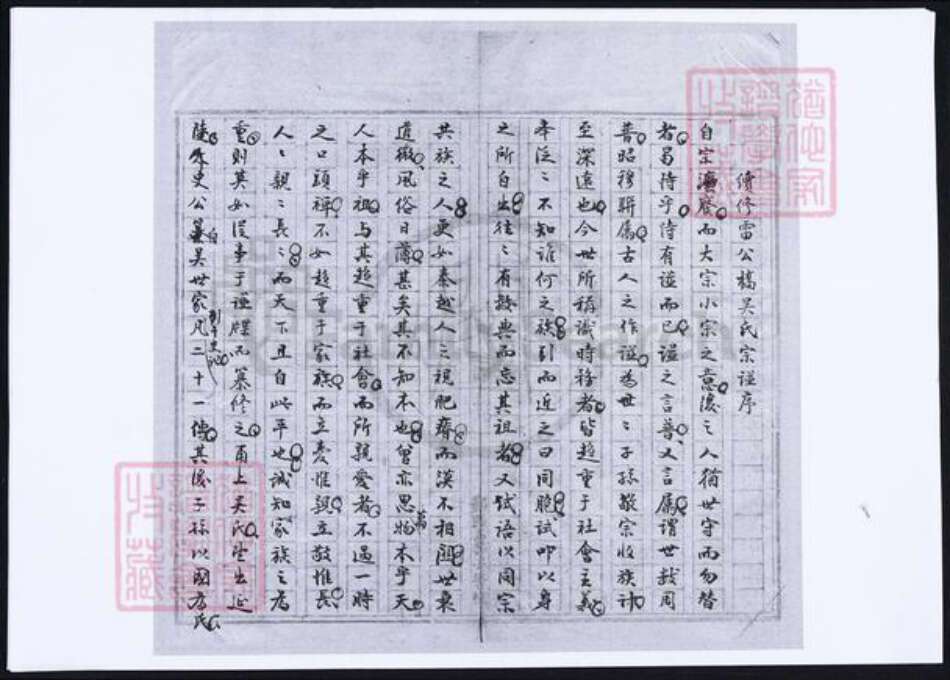 續修雷公橋吳氏宗譜序
自宗灋廢而大宗小宗之意後之人猶世守而勿替
者曷恃乎恃有譜而已譜之言普又言屬謂世裁周
普昭穆聯屬古人之作譜為世〻子孫敬宗收族計
至深遠也今世所稱識時務者皆趨重于社會主義
本泛〻不知誰何之族引而近之曰同胞試叩以身
之所自出往〻有數典而忘其祖者又試語以同宗
共族之人更如秦越人之視肥瘠而漠不相關世衰
道微風俗日薄甚矣其不知本也曾亦思萬物本乎天
人本乎祖与其趨重于社會而所親愛者不過一時
之口頭禪不如趨重于家族而立愛惟親立敬惟長
人〻親〻長〻而天下且自此平也誠知家族之為
重則其如從事于譜牒而纂修之甬上吴氏望出延
陵史公自吴世家列于史記凡二十一傳其後子孫以國為氏
猶他家譜學會收藏
收藏